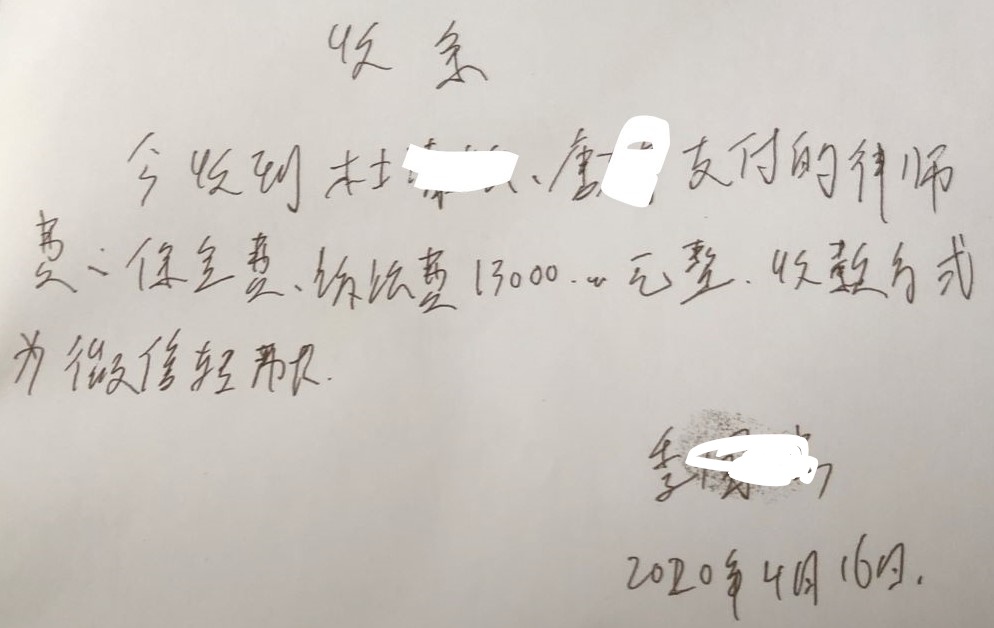 收条
今收到杜、唐 支付的律师
费、保全费、诉讼费13000.00元整.收款方式
为微信转账.
李
2020年4月16日.